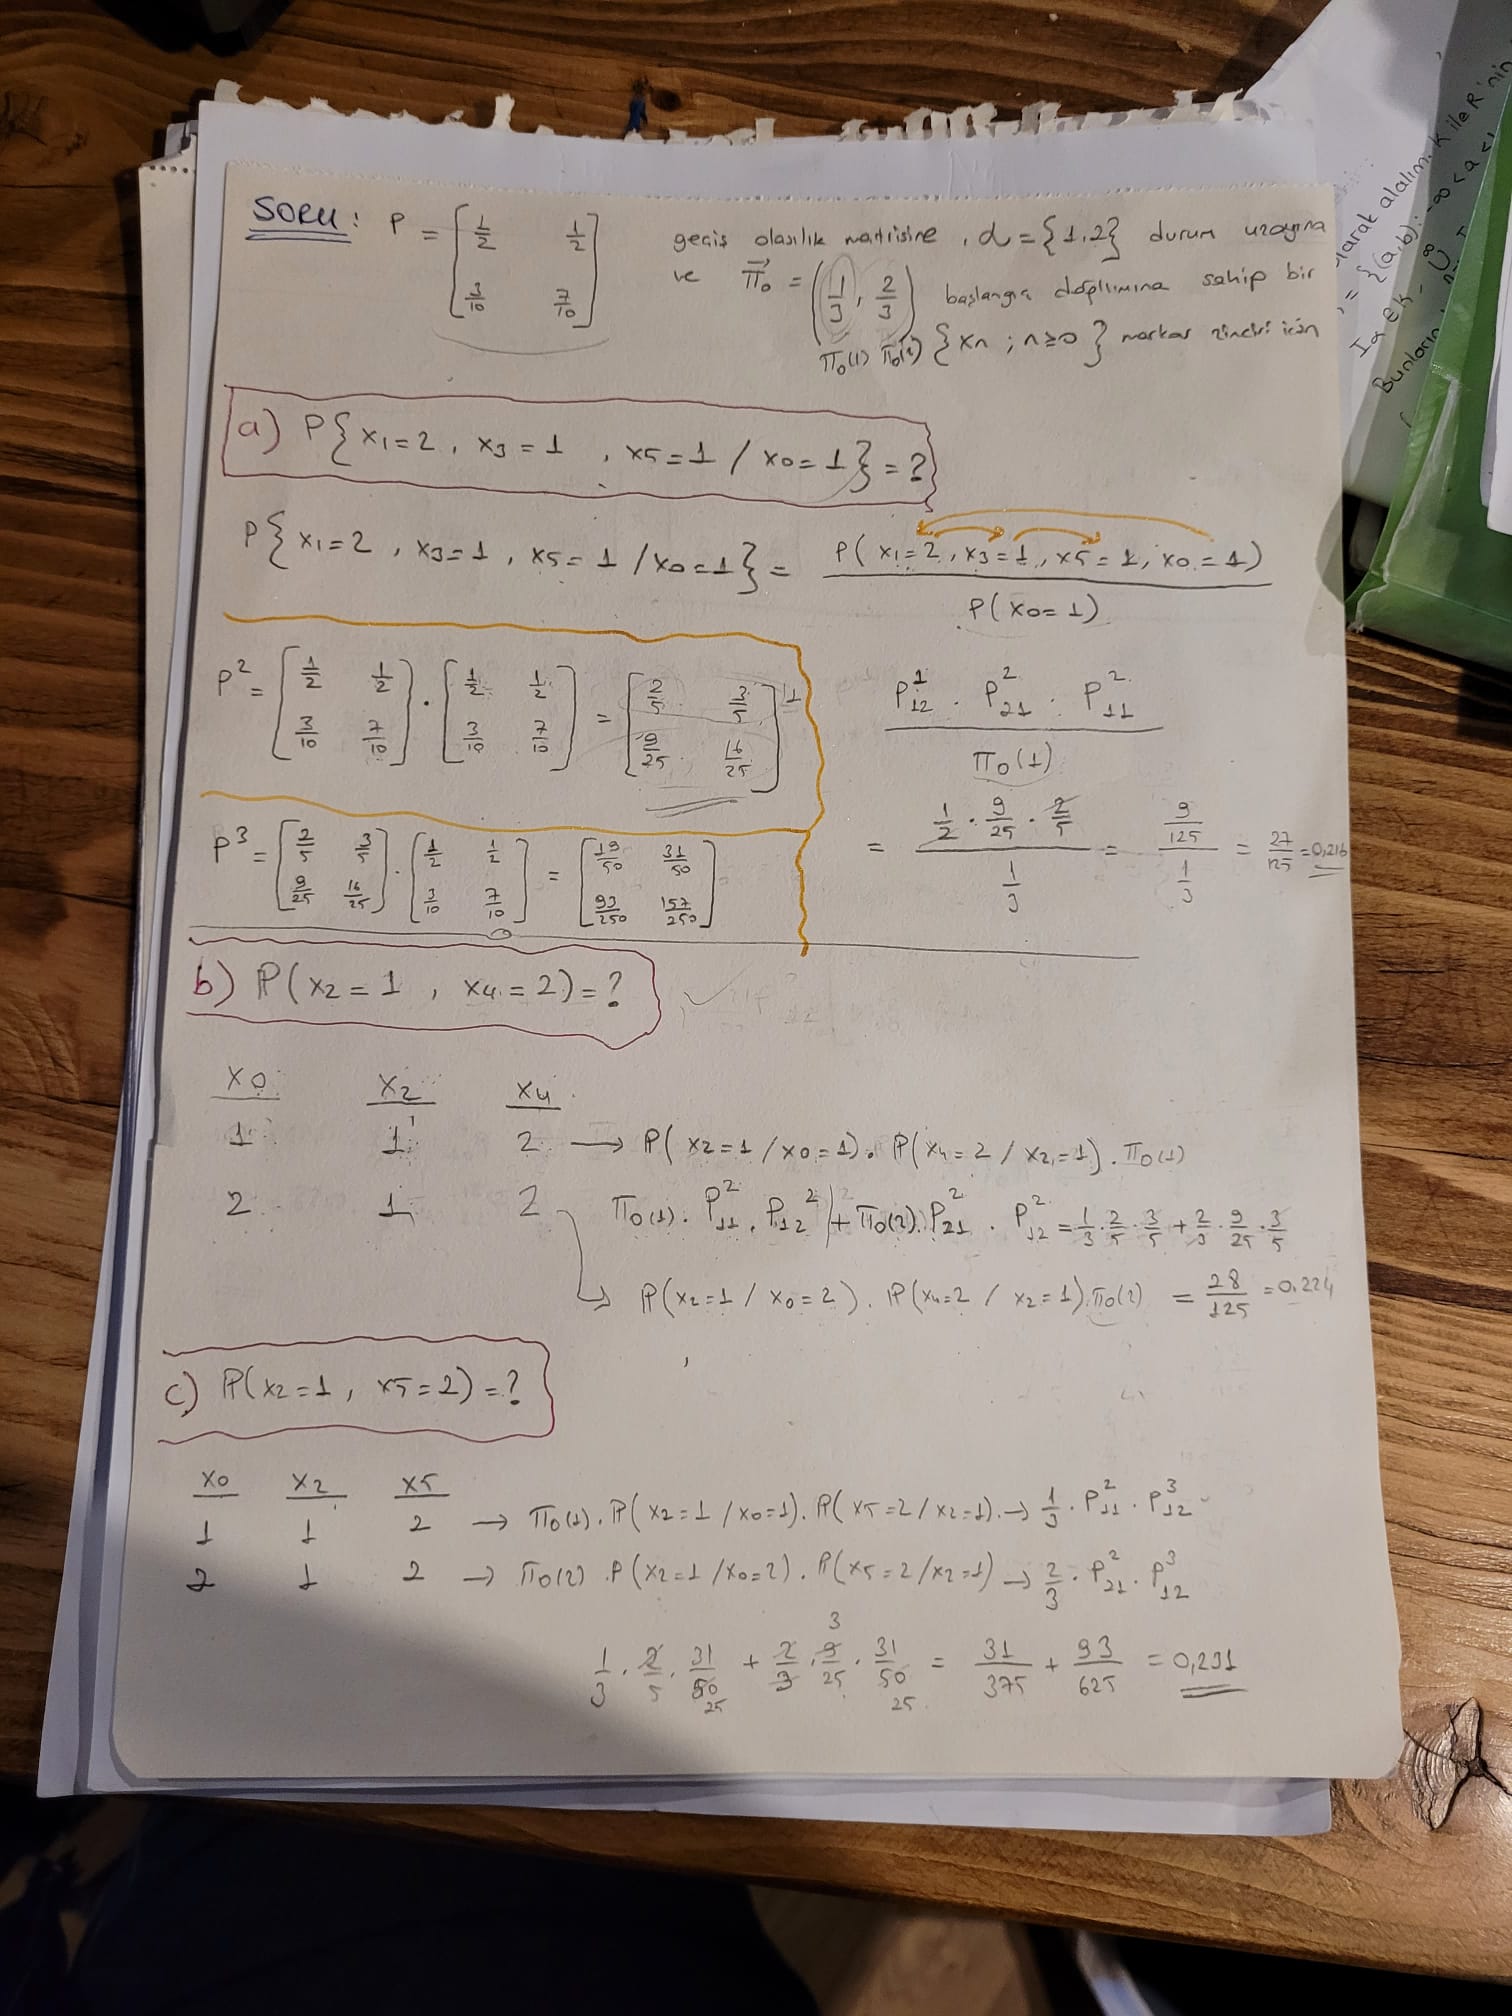 SORU: P = [1/2 1/2; 3/10 7/10] geçiş olasılık matrisine, α = {1,2} durum uzayına
ve π⃗0 = (1/3, 2/3) başlangıç dağılımına sahip bir
π0(1) π0(2) {Xn ; n≥0} markov zinciri için
a) P{X1=2, X3=1, X5=1 / X0=1} = ?
P{X1=2, X3=1, X5=1 / X0=1} = P(X1=2, X3=1, X5=1, X0=1) / P(X0=1)
P² = [1/2 1/2; 3/10 7/10] . [1/2 1/2; 3/10 7/10] = [2/5 3/5; 9/25 16/25]
P¹12 . P²21 . P²11 / π0(1)
= (1/2 . 9/25 . 2/5) / (1/3) = (9/125) / (1/3) = 27/125 = 0,216
P³ = [2/5 3/5; 9/25 16/25] . [1/2 1/2; 3/10 7/10] = [19/50 31/50; 93/250 157/250]
b) P(X2=1, X4=2) = ?
X0 X2 X4
1 1 2 → P(X2=1 / X0=1). P(X4=2 / X2=1). π0(1)
2 1 2 π0(1). P²11. P12² + π0(2). P²21 . P²12 = 1/3 . 2/5 . 3/5 + 2/3 . 9/25 . 3/5
↳ P(X2=1 / X0=2). P(X4=2 / X2=1).π0(2) = 28/125 = 0,224
c) P(X2=1, X5=2) = ?
X0 X2 X5
1 1 2 → π0(1). P(X2=1 / X0=1). P(X5=2 / X2=1). → 1/3 . P²11 . P³12
2 1 2 → π0(2) . P(X2=1 / X0=2). P(X5=2 / X2=1) → 2/3 . P²21 . P³12
1/3 . 2/5 . 31/50 + 2/3 . 9/25 . 31/50 = 31/375 + 93/625 = 0,231
3
25 25
olarak alalım. K ile R'nin
= {(a,b): -∞ < a <
Bunların